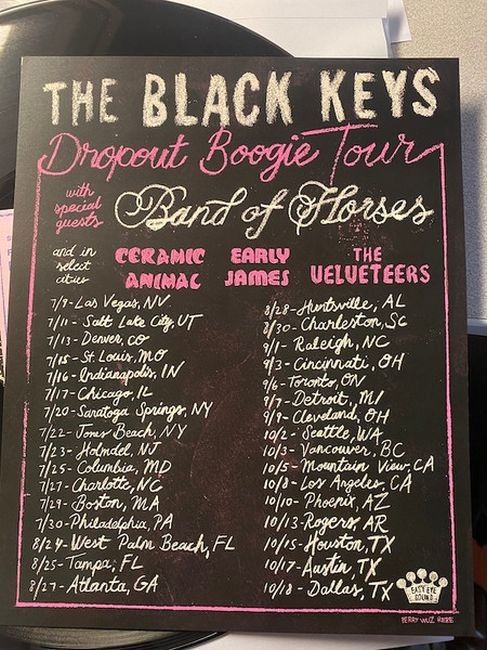 THE BLACK KEYS
Dropout Boogie Tour
with special guests
Band of Horses
and in select cities
CERAMIC ANIMAL
EARLY JAMES
THE VELVETEERS
7/9-Las Vegas, NV
7/11-Salt Lake City, UT
7/13-Denver, CO
7/15-St. Louis, MO
7/16-Indianapolis, IN
7/17-Chicago, IL
7/20-Saratoga Springs, NY
7/22-Jones Beach, NY
7/23-Holmdel, NJ
7/25-Columbia, MD
7/27-Charlotte, NC
7/29-Boston, MA
7/30-Philadelphia, PA
8/24-West Palm Beach, FL
8/25-Tampa, FL
8/27-Atlanta, GA
8/28-Huntsville, AL
8/30-Charleston, SC
9/1-Raleigh, NC
9/3-Cincinnati, OH
9/6-Toronto, ON
9/7-Detroit, MI
9/9-Cleveland, OH
10/2-Seattle, WA
10/3-Vancouver, BC
10/5-Mountain View, CA
10/8-Los Angeles, CA
10/10-Phoenix, AZ
10/13-Rogers, AR
10/15-Houston, TX
10/17-Austin, TX
10/18-Dallas, TX
EASY EYE
SOUND
PERRY WUZ HERE